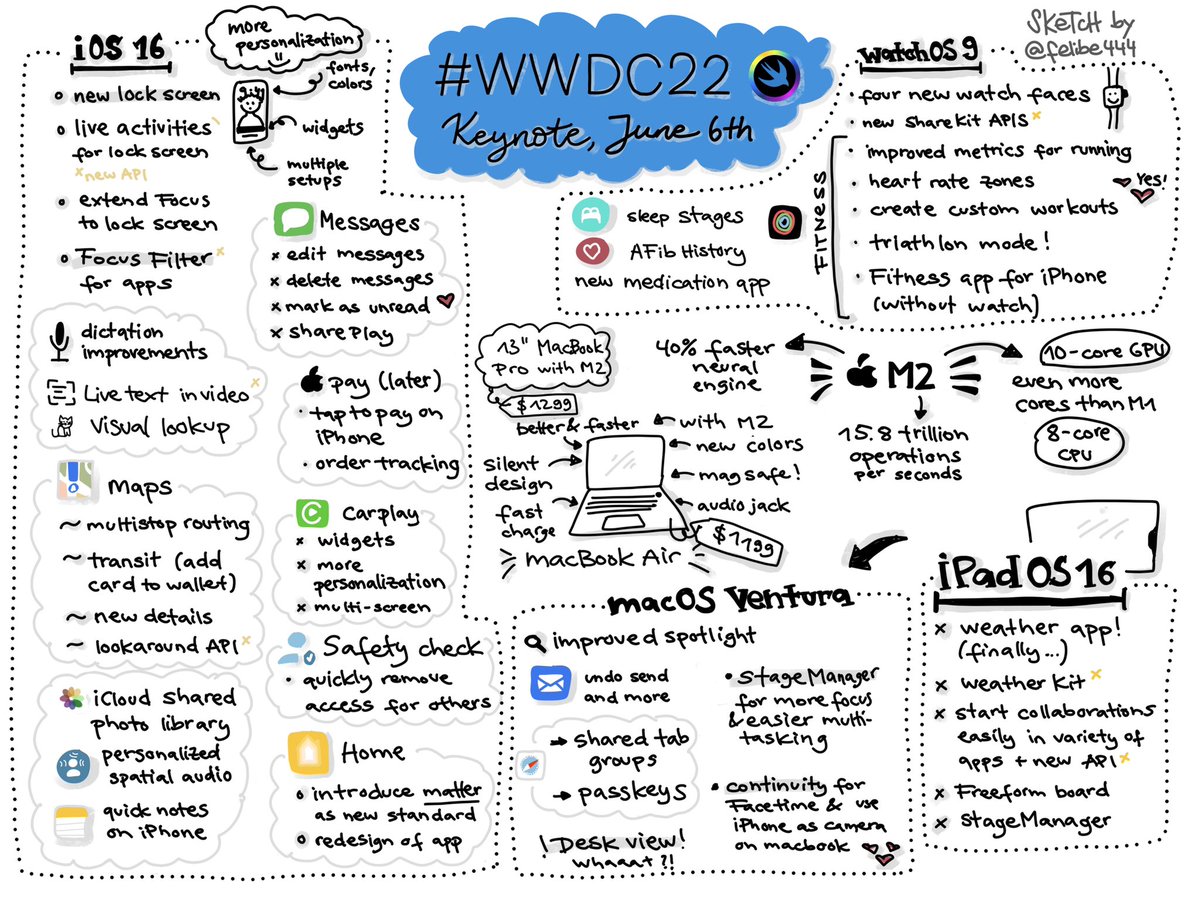 #WWDC22
Keynote, June 6th
SKETCH by
@felibe444
iOS 16
more
personalization
fonts,
colors
widgets
multiple
setups
o new lock screen
o live activities
for lock screen
x new API
o extend Focus
to lock screen
o Focus Filter x
for apps
dictation
improvements
Live text in video x
Visual lookup
Maps
~ multistop routing
~ transit (add
card to wallet)
~ new details
~ lookaround API x
iCloud shared
photo library
personalized
spatial audio
quick notes
on iPhone
Messages
x edit messages
x delete messages
x mark as unread
x sharePlay
pay (later)
· tap to pay on
iPhone
· order tracking
Carplay
x widgets
x more
personalization
x multi-screen
Safety check
· quickly remove
access for others
Home
o introduce matter
as new standard
o redesign of app
watchOS 9
· four new watch faces
· new ShareKit APIS x
FITNESS
· improved metrics for running
· heart rate zones
Yes!
· create custom workouts
· triathlon mode!
· Fitness app for iPhone
(without watch)
sleep stages
AFib History
new medication app
13" MacBook
Pro with M2
$1299
better & faster
silent
design
fast
charge
with M2
new colors
magsafe!
audio jack
$1199
macBook Air
M2
40% faster
neural
engine
15.8 trillion
operations
per seconds
10-core GPU
even more
cores than M1
8-core
CPU
macOS Ventura
improved spotlight
undo send
and more
→ shared tab
groups
→ passkeys
! Desk view!
whaaat ?!
• StageManager
for more focus
& easier multi-
tasking
• continuity for
Facetime & use
iPhone as camera
on macbook
iPadOS 16
x weather app!
(finally...)
x weatherKit x
x start collaborations
easily in variety of
apps + new API x
x Freeform board
x StageManager